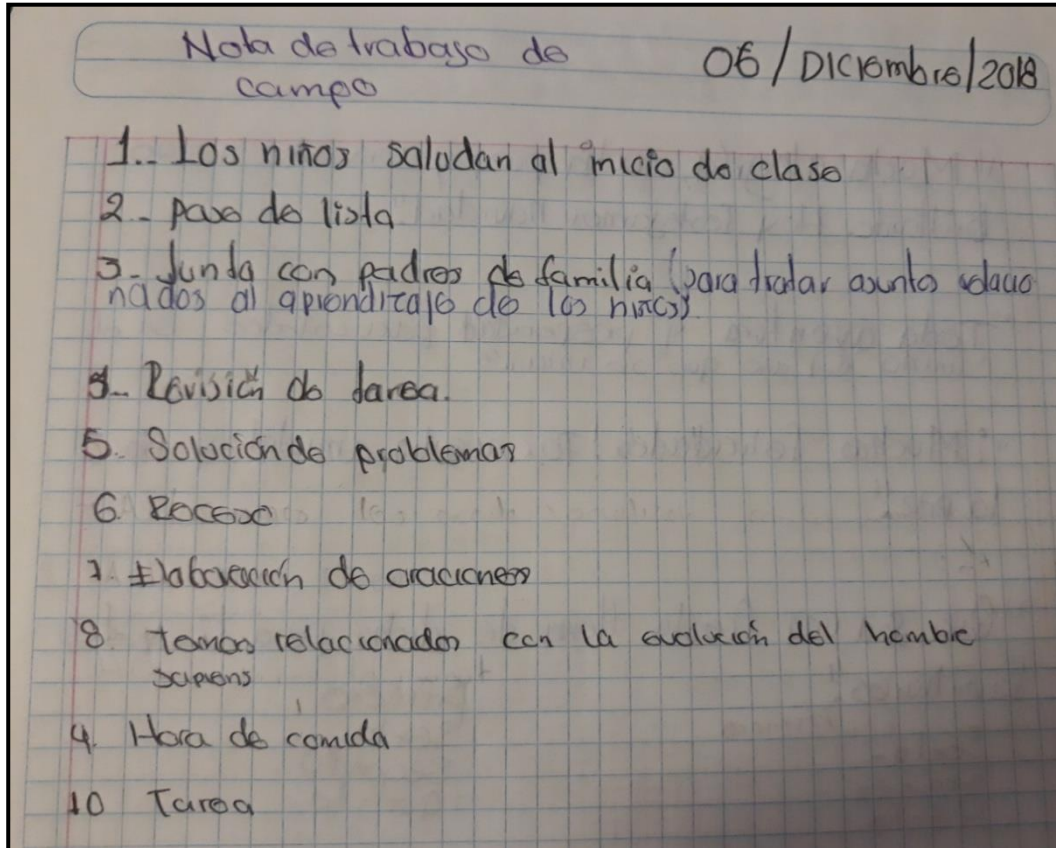 Nota de trabajo de
campo
06/Diciembre/2018
1.. Los niños saludan al inicio de clase
2.. pase de lista
3.. Junta con padres de familia (para tratar asunto relacio
nados al aprendizaje de los niños)
4.. Revisión de tarea.
5. Solución de problemas
6. Receso
7. Elaboración de oraciones
8. temas relacionados con la evolución del hombre
sapiens
9. Hora de comida
10 Tarea